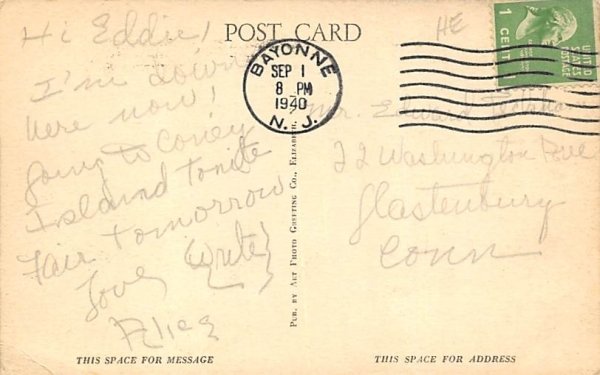 POST CARD
HE
1
CENT
UNITED
STATES
POSTAGE
BAYONNE
SEP 1
8 PM
1940
N. J.
Hi Eddie!
I'm down
here now!
going to Coney
Island tonite
Fair tomorrow
Love (Write)
Mr. Edward
22 Washington Ave
Glastenbury
Conn
PUB. BY ART PHOTO GREETING CO., ELIZABETH,
THIS SPACE FOR MESSAGE
THIS SPACE FOR ADDRESS